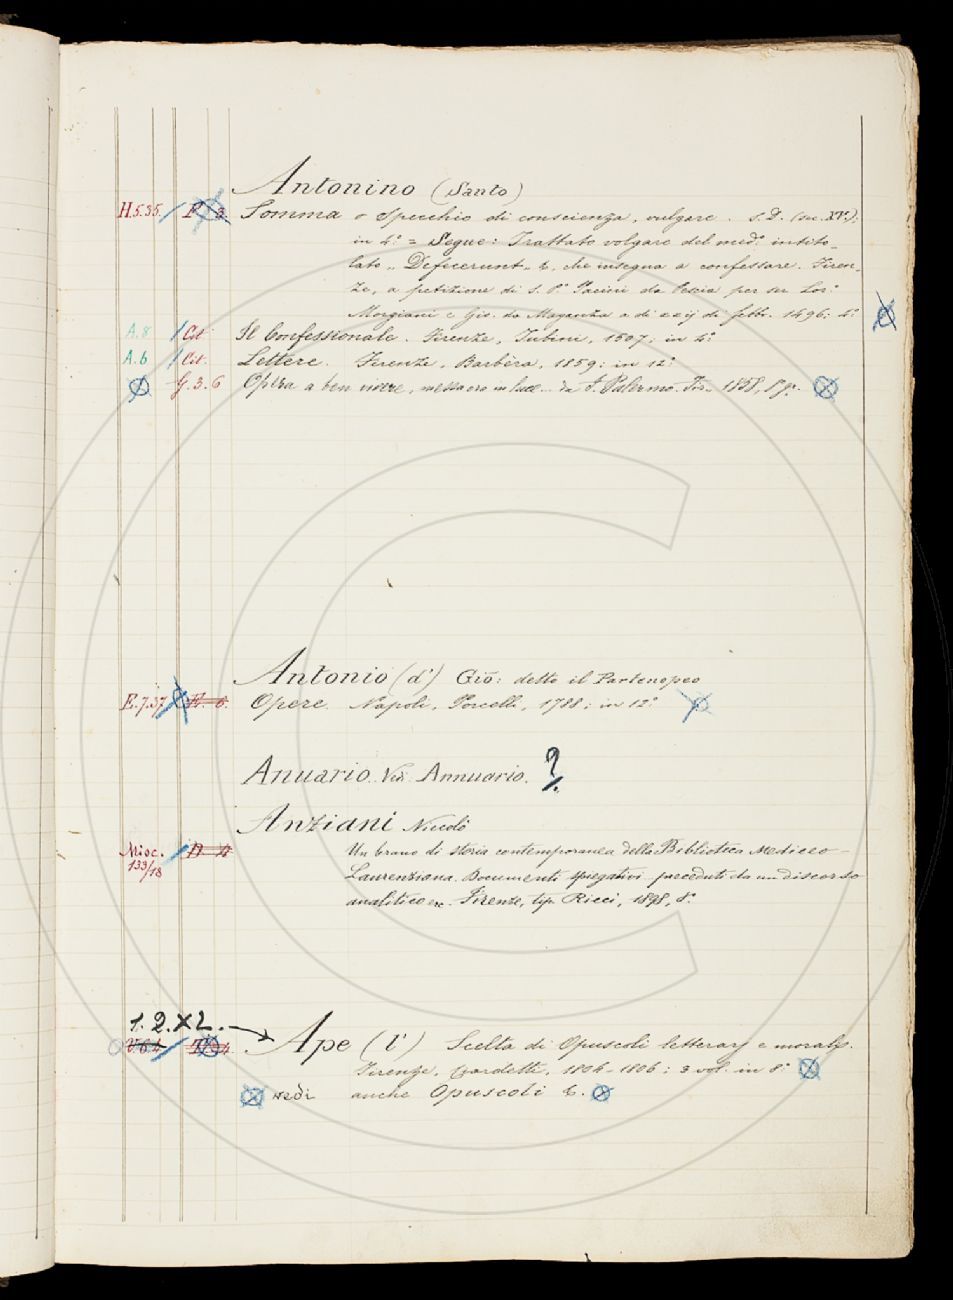 Antonino (Santo)
H.5.35. Somma o specchio di conscienza, vulgare. s.D. (sec. XV);
in 4.° = Segue: Trattato volgare del med.° intito-
lato „ Defecerunt „ &, che insegna a confessare. Firen-
ze, a petizione di s. P.° Pacini da Pescia per ser Lor.°
Morgiani e Gio. da Maganza a di xxij di febbr. 1496; 4.°
A.8 Cit. Il Confessionale. Firenze, 1507; in 4.°
A.6 Cit. Lettere. Firenze, Barbèra, 1859; in 12.°
G.3.6 Opera a ben vivere, messa ora in luce da F. Palermo. Fir. 1858, 8.°
Antonio (d') Gio: detto il Partenopeo
E.7.37 Opere. Napoli, Porcelli, 1788; in 12.°
Anuario. Ved. Annuario. ?
Anziani Niccolò
Misc. Un brano di storia contemporanea della Biblioteca Mediceo-
133/18 Laurenziana. Documenti spiegativi preceduti da un discorso
analitico ec. Firenze, tip. Ricci, 1898, 8.°
1.2.XL.
Ape (l') Scelta di Opuscoli letterarj e moralj.
Firenze, 1804-1806; 3 vol. in 8.°
vedi anche Opuscoli &.